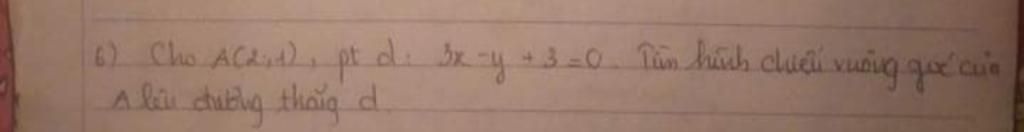 6) Cho A(2;1), pt d: 3x - y + 3 = 0. Tìm hình chiếu vuông góc của
A lên đường thẳng d